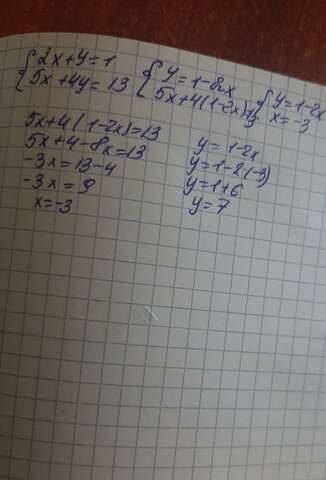 {2x+y=1 {y=1-2x {y=1-2x
5x+4y=13 5x+4(1-2x)=13 x=-3
5x+4(1-2x)=13
5x+4-8x=13
-3x=13-4
-3x=9
x=-3
y=1-2x
y=1-2(-3)
y=1+6
y=7